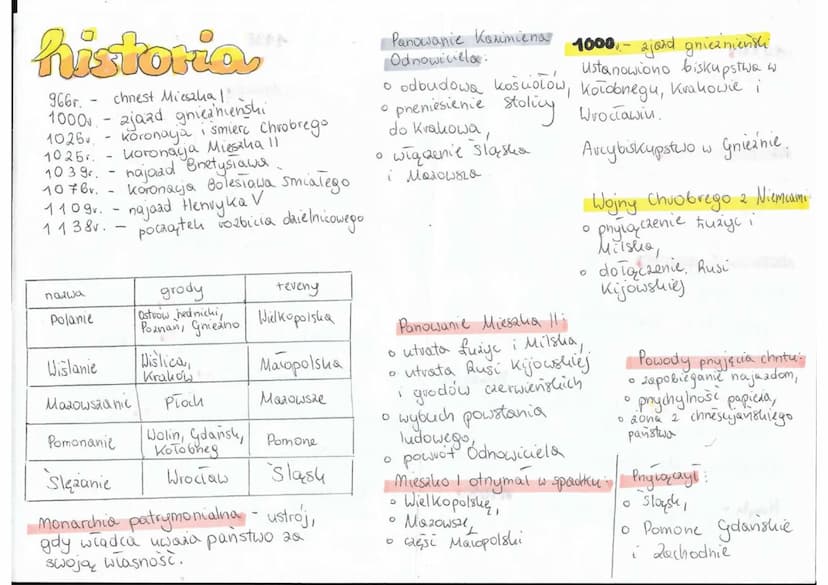 historia
966r. - chrzest Mieszka I
1000r. - zjazd gnieźnieński
1025r. - koronacja i śmierć Chrobrego
1025r. - koronacja Mieszka II
1039r. - najazd Brzetysława
1076r. - koronacja Bolesława Śmiałego
1109r. - najazd Henryka V
1138r. - początek rozbicia dzielnicowego
nazwa grody tereny
Polanie Ostrów Lednicki, Poznań, Gniezno Wielkopolska
Wiślanie Wiślica, Kraków Małopolska
Mazowszanie Płock Mazowsze
Pomorzanie Wolin, Gdańsk, Kołobrzeg Pomorze
Ślężanie Wrocław Śląsk
Monarchia patrymonialna - ustrój,
gdy władca uważa państwo za
swoją własność.
Panowanie Kazimierza
Odnowiciela:
o odbudowa kościołów,
o przeniesienie stolicy
do Krakowa,
o włączenie Śląska
i Mazowsza
Panowanie Mieszka II:
o utrata Łużyc i Milska,
o utrata Rusi Kijowskiej
i grodów czerwieńskich
o wybuch powstania
ludowego,
o powrót Odnowiciela
Mieszko I otrzymał w spadku:
o Wielkopolskę,
o Mazowsze,
o część Małopolski
1000r. - zjazd gnieźnieński
Ustanowiono biskupstwa w
Kołobrzegu, Krakowie i
Wrocławiu.
Arcybiskupstwo w Gnieźnie.
Wojny Chrobrego z Niemcami
o przyłączenie Łużyc i
Milska,
o dołączenie Rusi
Kijowskiej
Powody przyjęcia chrztu:
o zapobieganie najazdom,
o przychylność papieża,
o żona z chrześcijańskiego
państwa
Przyłączył:
o Śląsk,
o Pomorze Gdańskie
i Zachodnie